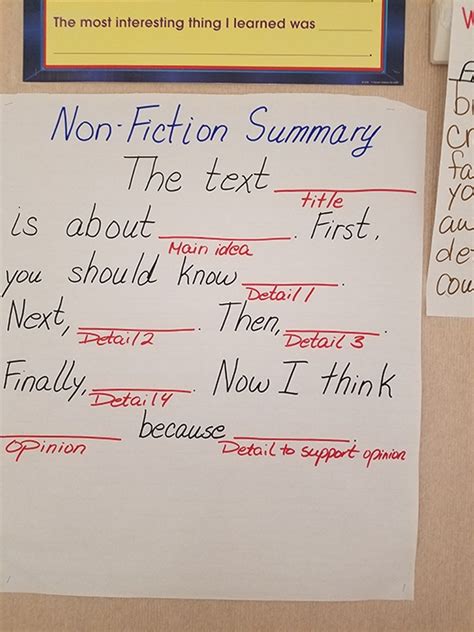 The most interesting thing I learned was
Non-Fiction Summary
The text
title
is about . First,
Main idea
you should know .
Detail 1
Next, . Then, .
Detail 2 Detail 3
Finally, . Now I think
Detail 4
because .
Opinion Detail to support opinion
W
bu
cr
fa
yo
au
det
cou